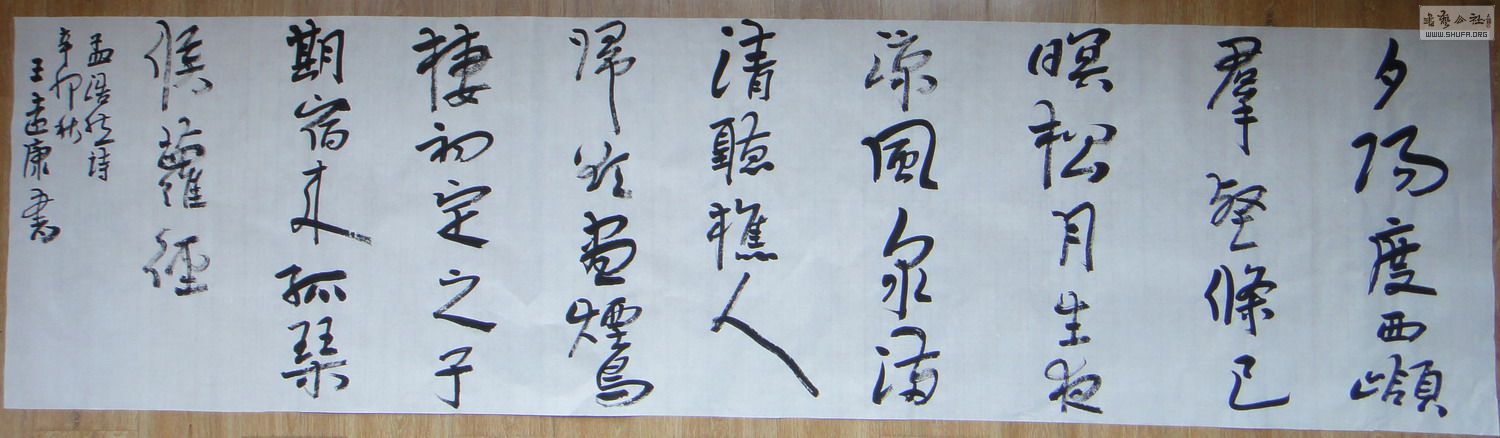 夕陽度西嶺
羣壑條已
暝松月生夜
涼風泉滿
清聽樵人
歸欲盡煙鳥
棲初定之子
期宿來孤琴
候蘿徑
孟浩然詩
辛卯秋
王遠康書
書藝公社
WWW.SHUFA.ORG